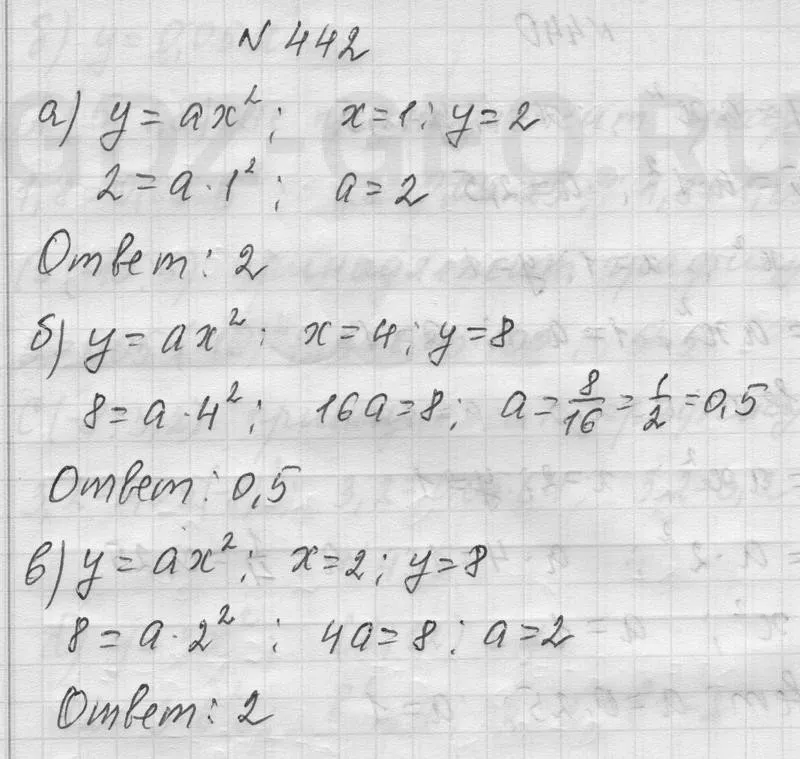 N 442
а) y = ax²; x=1; y=2
2 = a·1²; a=2
Ответ: 2
б) y = ax²: x=4; y=8
8 = a·4²; 16a=8; a=8/16=1/2=0,5
Ответ: 0,5
в) y = ax²; x=2; y=8
8 = a·2²; 4a=8; a=2
Ответ: 2